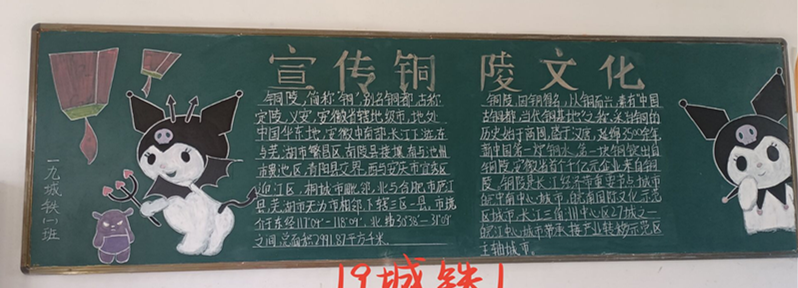 宣传铜 陵文化
铜陵,简称"铜",别名铜都、古称
定陵、义安,安徽省辖地级市,地处
中国华东地,安徽中南部、长江下游,东
与芜湖市繁昌区、南陵县接壤,南与池州
市贵池区、青阳县交界,西与安庆市宜秀区
迎江区、桐城市毗邻,北与合肥市庐江
县、芜湖市无为市相邻,下辖三区一县,市境
位于东经117°04'—118°09',北纬30°38'—31°09'
之间,总面积2991.87平方千米.
铜陵,因铜得名,以铜而兴,素有中国
古铜都,当代铜基地之称,采冶铜的
历史始于商周,盛于汉唐,延绵3500余年
新中国第一炉铜水、第一块铜锭出自
铜陵,安徽省首个千亿元企业来自铜
陵,铜陵是长江经济带重要节点城市
皖中南中心城市,皖南国际文化示范
区城市,长江三角洲中心区27城之一
皖江城市带承接产业转移示范区
主轴城市。
一九城铁(一)班
19城铁1